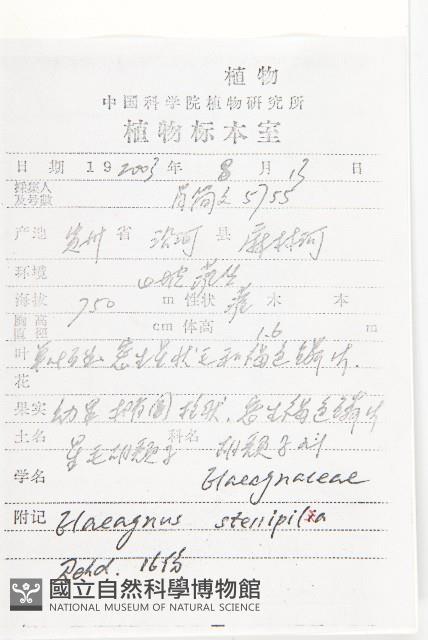 植物
中国科学院植物研究所
植物标本室
日期 19 2003 年 8 月 13 日
採集人及号數 肖简文 5755
产地 贵州 省 沿河 县 麻林河
环境 山坡灌丛
海拔 750 m 性状 灌 木 本
胸高直徑 cm 体高 1.6 m
叶 单叶互生 密生星状毛和褐色鳞片.
花
果实 幼果 椭圆柱状. 密生褐色鳞片
土名 星毛胡颓子 科名 胡颓子科
学名 Elaeagnaceae
附记 Elaeagnus stellipila
Rehd. 16份
國立自然科學博物館
NATIONAL MUSEUM OF NATURAL SCIENCE